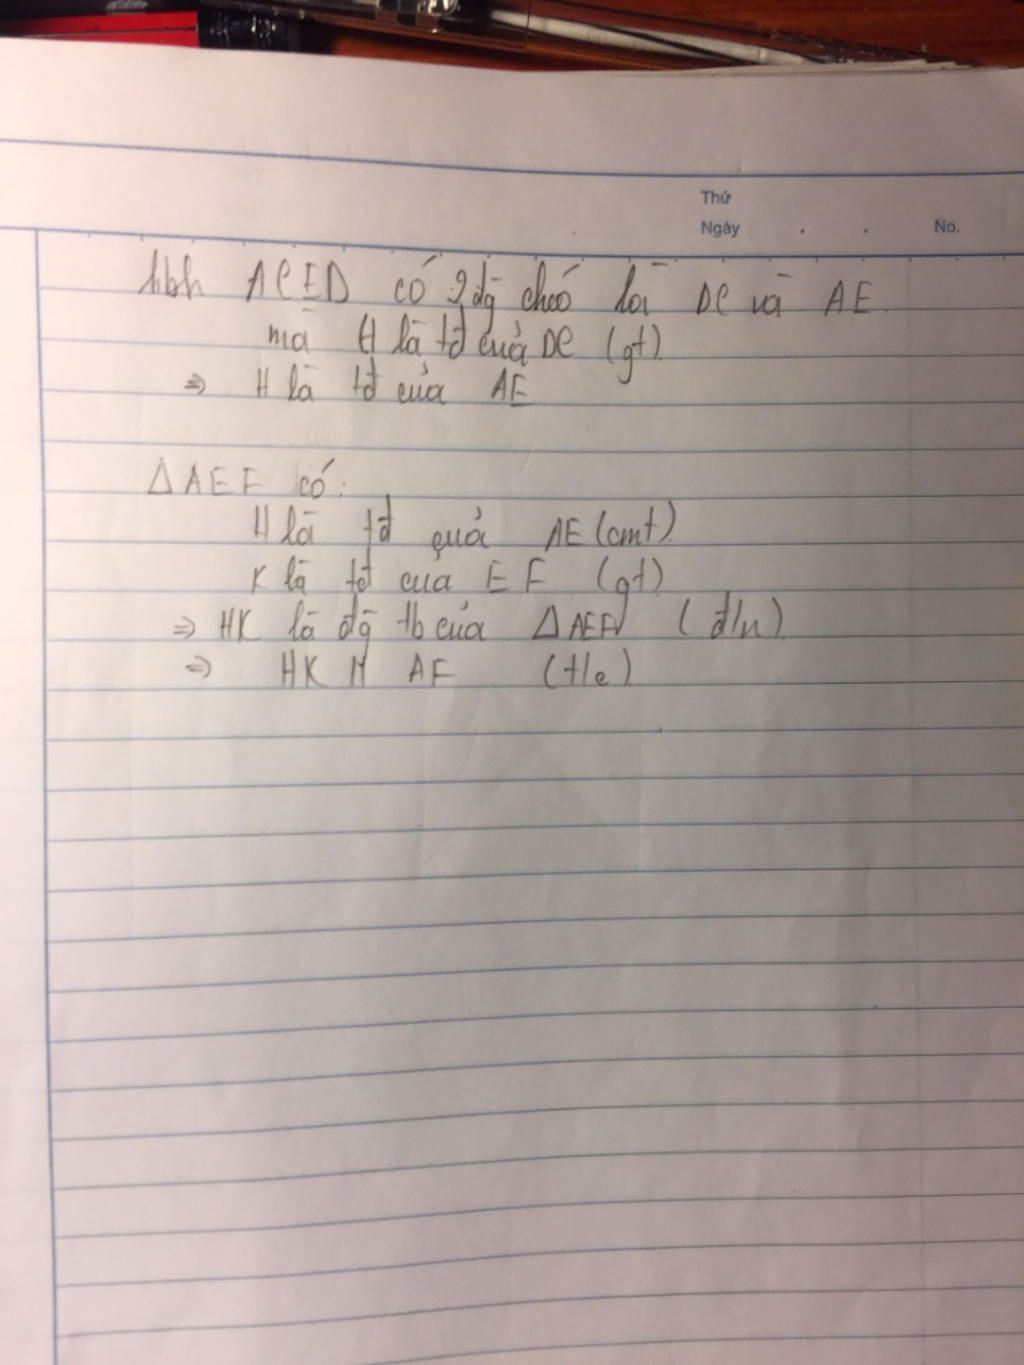 Thứ
Ngày . . No.
hbh ACED có 2 đg chéo là DC và AE
mà H là tđ của DC (gt)
⇒ H là tđ của AE
Δ AEF có:
H là tđ của AE (cmt)
K là tđ cua EF (gt)
⇒ HK là đg tb của Δ AEF (đ/n)
⇒ HK // AF (t/c)